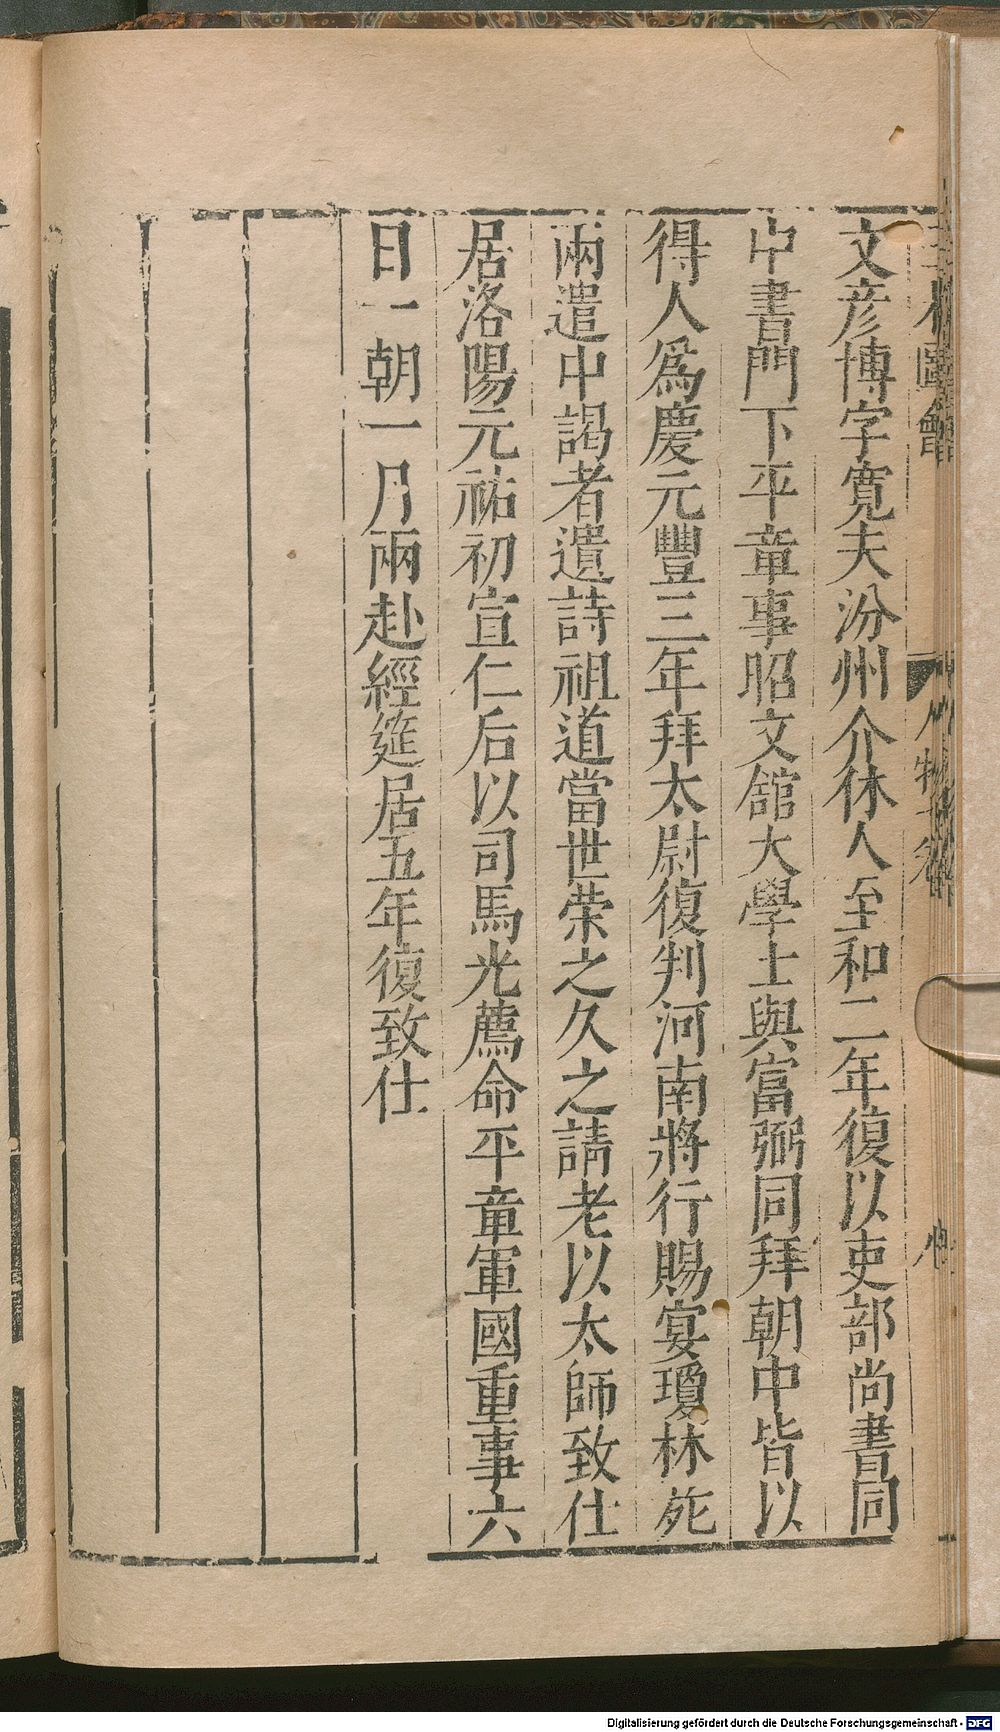 三才圖會
人物六卷
文彦博字寬夫汾州介休人至和二年復以吏部尚書同
中書門下平章事昭文館大學士與富弼同拜朝中皆以
得人為慶元豐三年拜太尉復判河南將行賜宴瓊林苑
兩遣中謁者遺詩祖道當世荣之久之請老以太師致仕
居洛陽元祐初宣仁后以司馬光薦命平章軍國重事六
日一朝一月兩赴經筵居五年復致仕
Digitalisierung gefördert durch die Deutsche Forschungsgemeinschaft - DFG